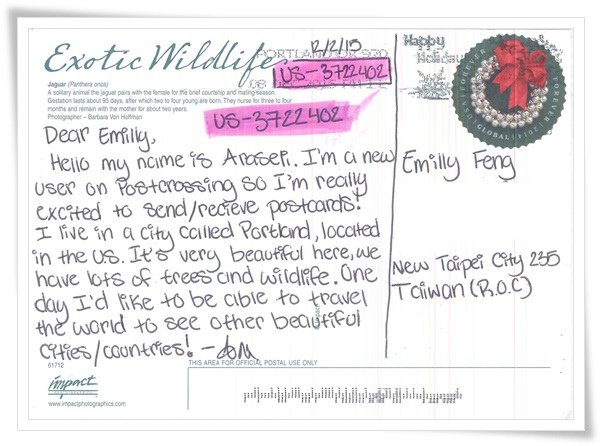 Exotic Wildlife
Jaguar (Panthera onca)
A solitary animal the jaguar pairs with the female for the brief courtship and mating season.
Gestation lasts about 95 days, after which two to four young are born. They nurse for three to four
months and remain with the mother for about two years.
Photographer – Barbara Von Hoffman
12/2/15
PORTLAND OR 970
US-3722402
US-3722402
Dear Emilly,
Hello my name is Araseli. I'm a new
user on Postcrossing so I'm really
excited to send/recieve postcards!
I live in a city called Portland, located
in the US. It's very beautiful here, we
have lots of trees and wildlife. One
day I'd like to be able to travel
the world to see other beautiful
cities/countries!
Happy
FOREVER
GLOBAL
Emilly Feng
New Taipei City 235
Taiwan (R.O.C)
THIS AREA FOR OFFICIAL POSTAL USE ONLY
61712
impact
www.impactphotographics.com